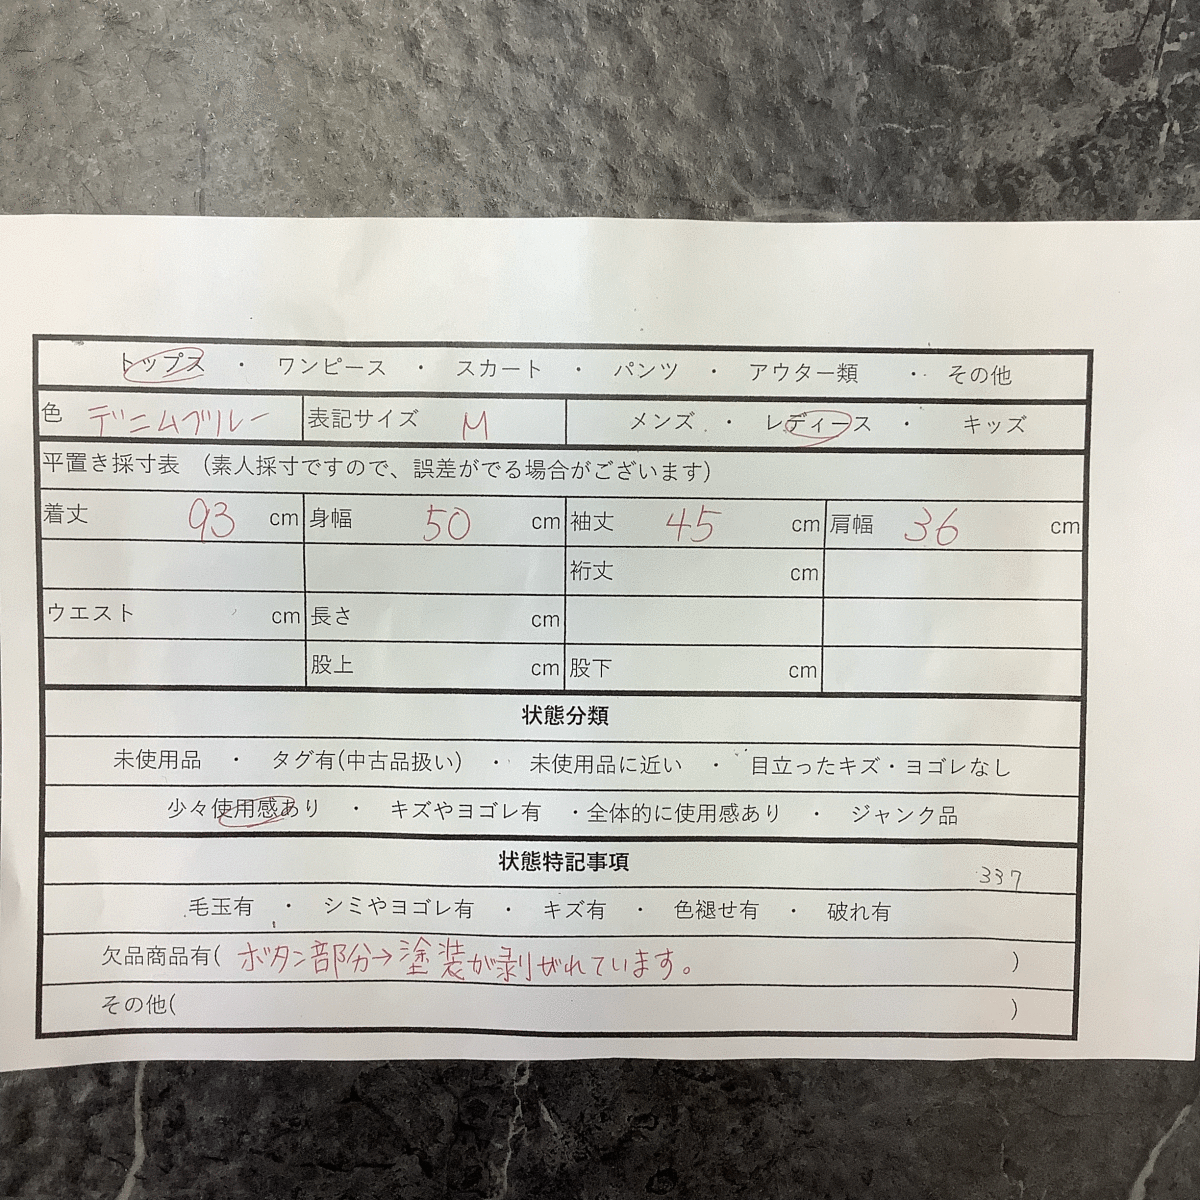 トップス ・ ワンピース ・ スカート ・ パンツ ・ アウター類 ・ その他
色 デニムブルー 表記サイズ M メンズ ・ レディース ・ キッズ
平置き採寸表 （素人採寸ですので、誤差がでる場合がございます）
着丈 93 cm 身幅 50 cm 袖丈 45 cm 肩幅 36 cm
裄丈 cm
ウエスト cm 長さ cm
股上 cm 股下 cm
状態分類
未使用品 ・ タグ有(中古品扱い) ・ 未使用品に近い ・ 目立ったキズ・ヨゴレなし
少々使用感あり ・ キズやヨゴレ有 ・全体的に使用感あり ・ ジャンク品
状態特記事項
337
毛玉有 ・ シミやヨゴレ有 ・ キズ有 ・ 色褪せ有 ・ 破れ有
欠品商品有( ボタン部分→塗装が剥がれています。 )
その他( )